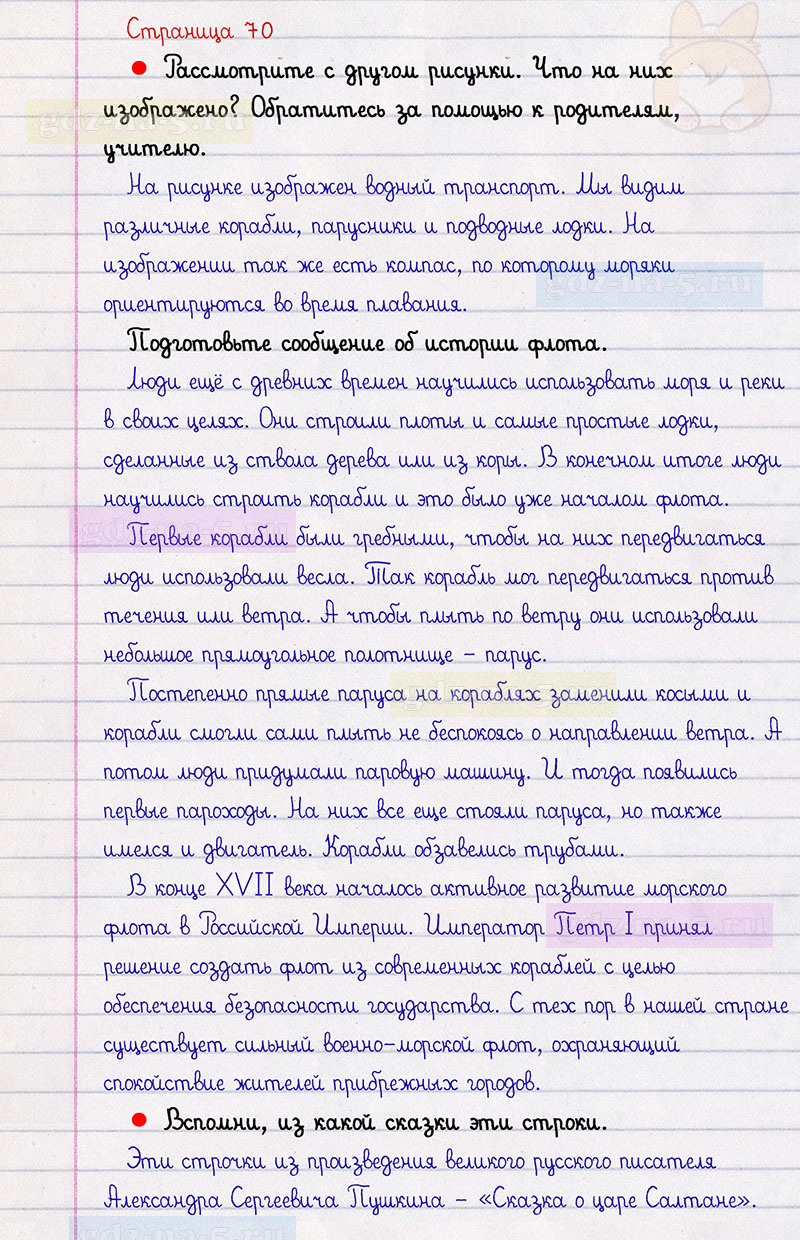 Страница 70
• Рассмотрите с другом рисунки. Что на них
изображено? Обратитесь за помощью к родителям,
учителю.
На рисунке изображен водный транспорт. Мы видим
различные корабли, парусники и подводные лодки. На
изображении так же есть компас, по которому моряки
ориентируются во время плавания.
Подготовьте сообщение об истории флота.
Люди ещё с древних времен научились использовать моря и реки
в своих целях. Они строили плоты и самые простые лодки,
сделанные из ствола дерева или из коры. В конечном итоге люди
научились строить корабли и это было уже началом флота.
Первые корабли были гребными, чтобы на них передвигаться
люди использовали весла. Так корабль мог передвигаться против
течения или ветра. А чтобы плыть по ветру они использовали
небольшое прямоугольное полотнище – парус.
Постепенно прямые паруса на кораблях заменили косыми и
корабли смогли сами плыть не беспокоясь о направлении ветра. А
потом люди придумали паровую машину. И тогда появились
первые пароходы. На них все еще стояли паруса, но также
имелся и двигатель. Корабли обзавелись трубами.
В конце XVII века началось активное развитие морского
флота в Российской Империи. Император Петр I принял
решение создать флот из современных кораблей с целью
обеспечения безопасности государства. С тех пор в нашей стране
существует сильный военно-морской флот, охраняющий
спокойствие жителей прибрежных городов.
• Вспомни, из какой сказки эти строки.
Эти строчки из произведения великого русского писателя
Александра Сергеевича Пушкина – «Сказка о царе Салтане».